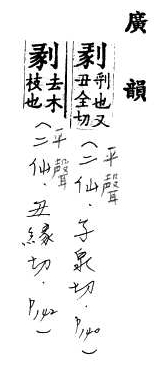 廣韻
剶 也又丑全切
（平聲 二仙．子泉切．P.140）
剶 去木枝也
（平聲 二仙．丑緣切．P.142）